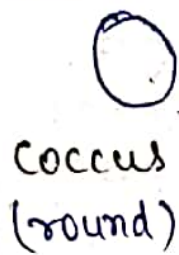 coccus
(round)